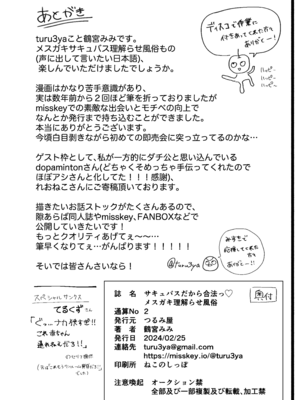 あとがき
turu3yaこと鶴宮みみです。
メスガキサキュバス理解らせ風俗もの
(声に出して言いたい日本語)、
楽しんでいただけましたでしょうか。
漫画はかなり苦手意識があり、
実は数年前から２回ほど筆を折っておりましたが
misskeyでの素敵な出会いとモチベの向上で
なんとか発行まで持ち込むことができました。
本当にありがとうございます。
今頃白目剥きながら初めての即売会に突っ立ってるのかな…
ゲスト枠として、私が一方的にダチ公と思い込んでいる
dopamintonさん(どちゃくそめっちゃ手伝ってくれたので
ほぼアシさんと化してた！！！感謝)、
れおねこさんにご寄稿頂いております。
描きたいお話ストックがたくさんあるので、
隙あらば同人誌やmisskey、FANBOXなどで
公開していきたいです！
もっとクオリティあげてぇ〜〜…
筆早くなりてぇ…がんばります！！！！！
そいでは皆さんさいなら！
ディスコで作業に
付きあってくれた方も
ありがとー!!
ハッピー
ハッピー
ハッピー
みすきで
応援してくれた方も
ありがとー!!
@turu3ya
スペシャルサンクス
てるくずさん
奥付
誌　名　サキュバスだから合法っ♡
メスガキ理解らせ風俗
通算No　2
発行元　つるみ屋
著者　鶴宮みみ
発行日　2024/02/25
連絡先　turu3ya@gmail.com
https://misskey.io/@turu3ya
印刷所　ねこのしっぽ
注意喚起　オークション禁
全部及び一部複製及び転載、加工禁